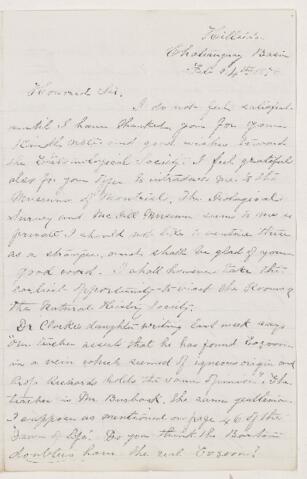 Hillside
Chateauguay Basin
Feb 14th 187
Honored Sir.
I do not feel satisfied
until I have thanked you for your
kind note and good wishes toward
the Entomological Society. I feel grateful
also for your offer to introduce me to the
Museums of Montreal, The Geological
Survey and McGill Museum seems to me so
private I should not like to venture there
as a stranger, and shall be glad of your
good word. I shall however take the
earliest opportunity to visit the Rooms of
the Natural History Society.
Dr Clarke's daughter writing last week says
"Our teacher asserts that he has found Eozoon
in a vein which seemed of igneous origin and
Prof. Richards holds the same opinion". The
teacher is Mr Burbank, the same gentleman
I suppose as mentioned on page 46 of the
'Dawn of Life'. Do you think the Boston
doubters have the real Eozoon?